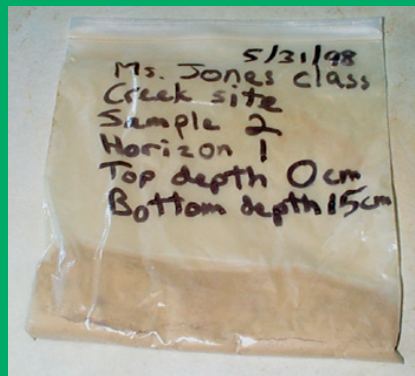 5/31/98
Ms. Jones class
Creek site
Sample 2
Horizon 1
Top depth 0cm
Bottom depth 15cm